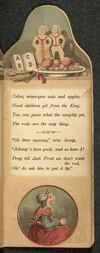 A B C
D
Cakes, mince-pies nuts and apples,
Good children get from the King.
You can guess what the naughty get,
The rods are the only thing.
"Oh dear mamma," cries Jenny,
"Johnny's been good, and so have I!
Pray tell Jack Frost we don't need
the rod,
Oh! do ask him to put it by."